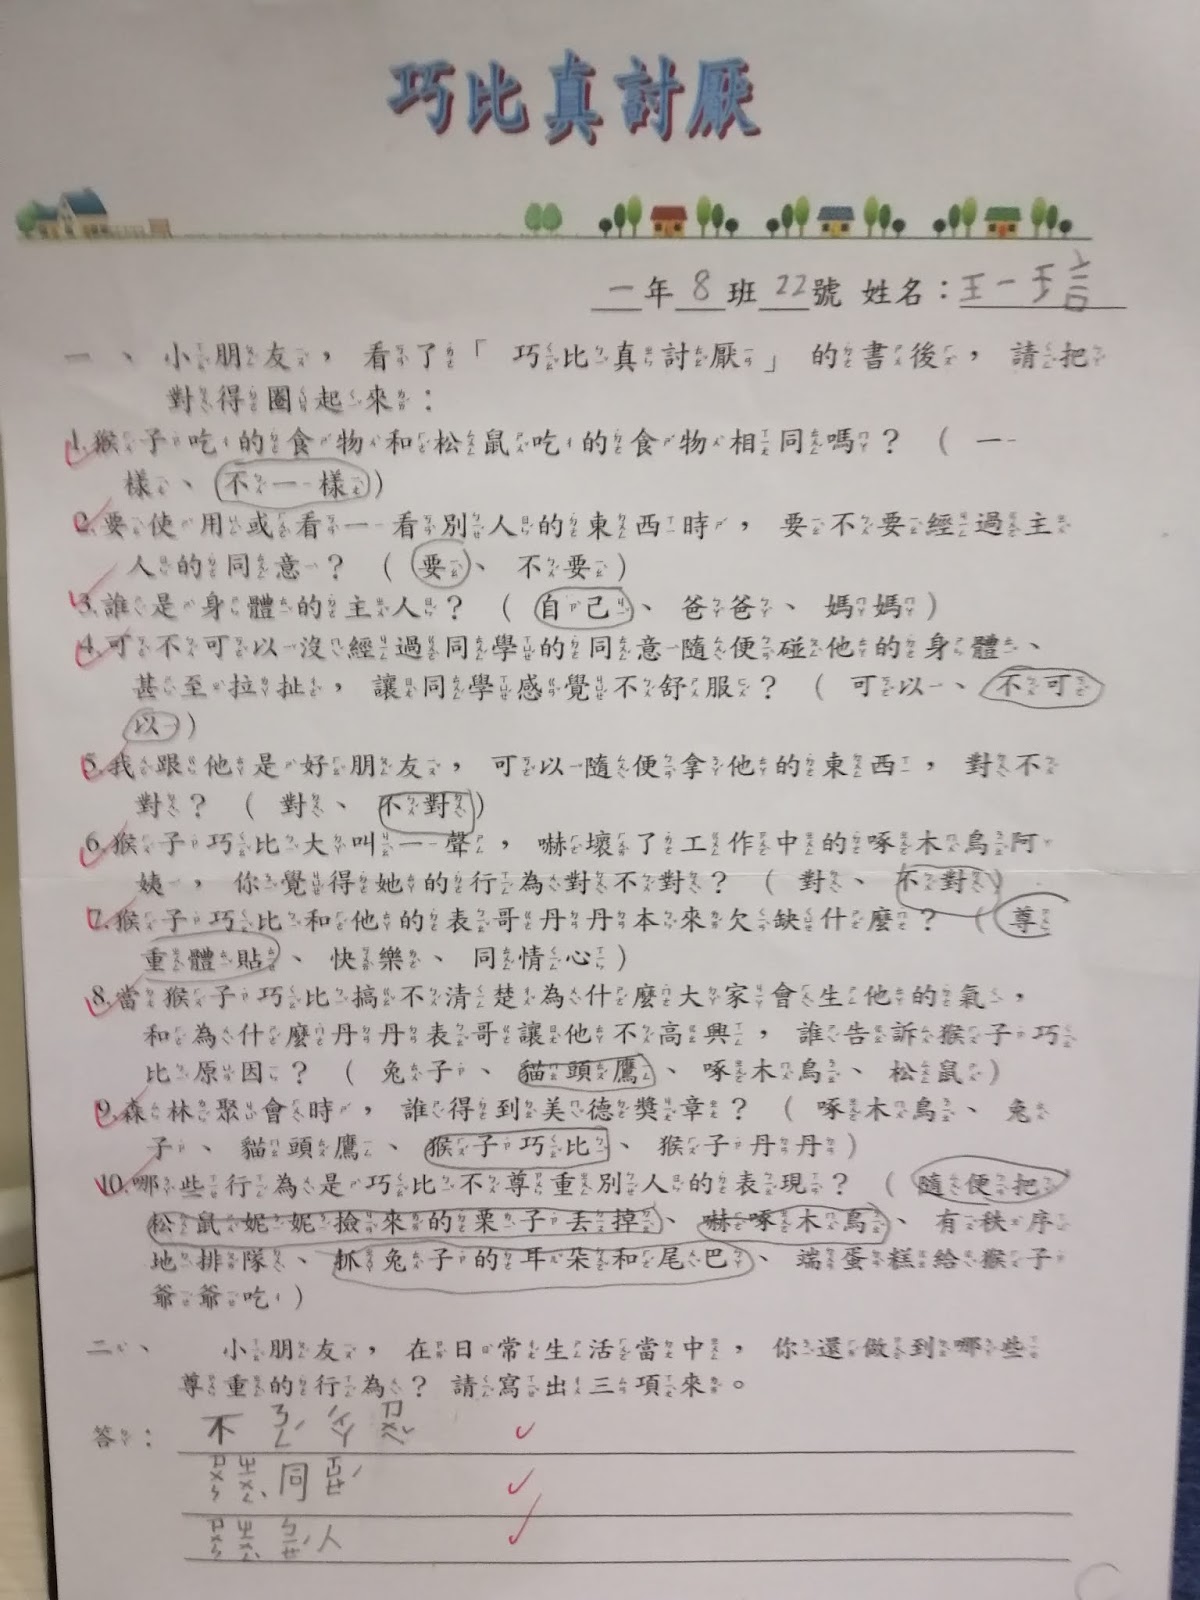 巧比真討厭
一年8班22號 姓名：王一
一、小朋友，看了「巧比真討厭」的書後，請把
對得圈起來：
1.猴子吃的食物和松鼠吃的食物相同嗎？（一
樣、不一樣）
2.要使用或看一看別人的東西時，要不要經過主
人的同意？（要、不要）
3.誰是身體的主人？（自己、爸爸、媽媽）
4.可不可以沒經過同學的同意隨便碰他的身體、
甚至拉扯，讓同學感覺不舒服？（可以、不可
以）
5.我跟他是好朋友，可以隨便拿他的東西，對不
對？（對、不對）
6.猴子巧比大叫一聲，嚇壞了工作中的啄木鳥阿
姨，你覺得她的行為對不對？（對、不對）
7.猴子巧比和他的表哥丹丹本來欠缺什麼？（尊
重體貼、快樂、同情心）
8.當猴子巧比搞不清楚為什麼大家會生他的氣，
和為什麼丹丹表哥讓他不高興，誰告訴猴子巧
比原因？（兔子、貓頭鷹、啄木鳥、松鼠）
9.森林聚會時，誰得到美德獎章？（啄木鳥、兔
子、貓頭鷹、猴子巧比、猴子丹丹）
10.哪些行為是巧比不尊重別人的表現？（隨便把
松鼠妮妮撿來的栗子丟掉、嚇啄木鳥、有秩序
地排隊、抓兔子的耳朵和尾巴、端蛋糕給猴子
爺爺吃）
二、小朋友，在日常生活當中，你還做到哪些
尊重的行為？請寫出三項來。
答：不
ㄗㄨㄣ ㄓㄨㄥˋ 同 ㄒㄩㄝˊ
ㄗㄨㄣ ㄓㄨㄥˋ ㄅㄧㄝˊ 人